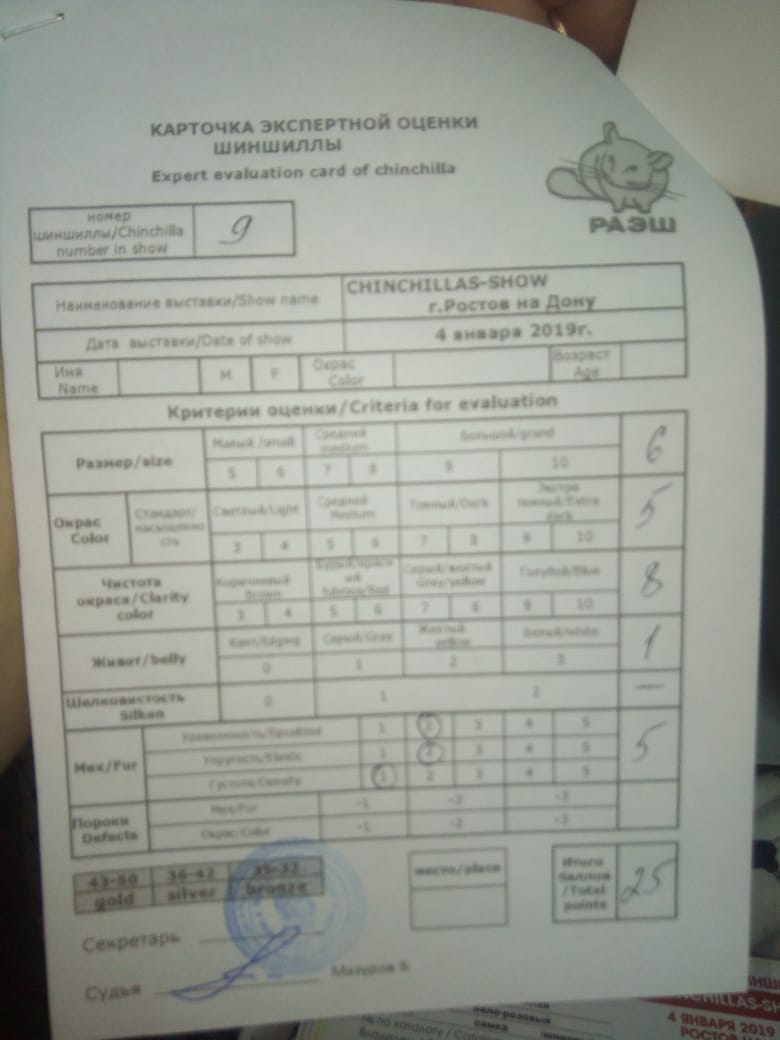 КАРТОЧКА ЭКСПЕРТНОЙ ОЦЕНКИ
ШИНШИЛЛЫ
Expert evaluation card of chinchilla
РАЭШ
номер
шиншиллы/Chinchilla
number in show
9
Наименование выставки/Show name
CHINCHILLAS-SHOW
г.Ростов на Дону
Дата выставки/Date of show
4 января 2019г.
Имя
Name
M
F
Окрас
Color
Возраст
Age
Критерии оценки/Criteria for evaluation
Размер/size
Малый /small
Средний
medium
Большой/grand
5 6 7 8 9 10
6
Окрас
Color
Стандарт/
насыщенно
сть
Светлый/Light
Средний
Medium
Темный/Dark
Экстра
темный/Extra
dark
3 4 5 6 7 8 9 10
5
Чистота
окраса/Clarity
color
Коричневый
Brown
Серый/желтый
Gray/yellow
Голубой/Blue
3 4 5 6 7 8 9 10
8
Живот/belly
Кант/Edging
Серый/Gray
Желтый
yellow
Белый/white
0 1 2 3
1
Шелковистость
Silken
0 1 2
—
Мех/Fur
1 2 3 4 5
Упругость/Elastic
1 2 3 4 5
Густота/Density
1 2 3 4 5
5
Пороки
Defects
Мех/Fur
-1 -2 -3
Окрас/Color
-1 -2 -3
43-50 36-42 35-32
gold silver bronze
место/place
Итого
баллов
/Total
points
25
Секретарь
Судья
Мазуров В.
бело-розовый
самка
CHINCHILLAS-SH
4 ЯНВАРЯ 2019
РОСТОВ НА